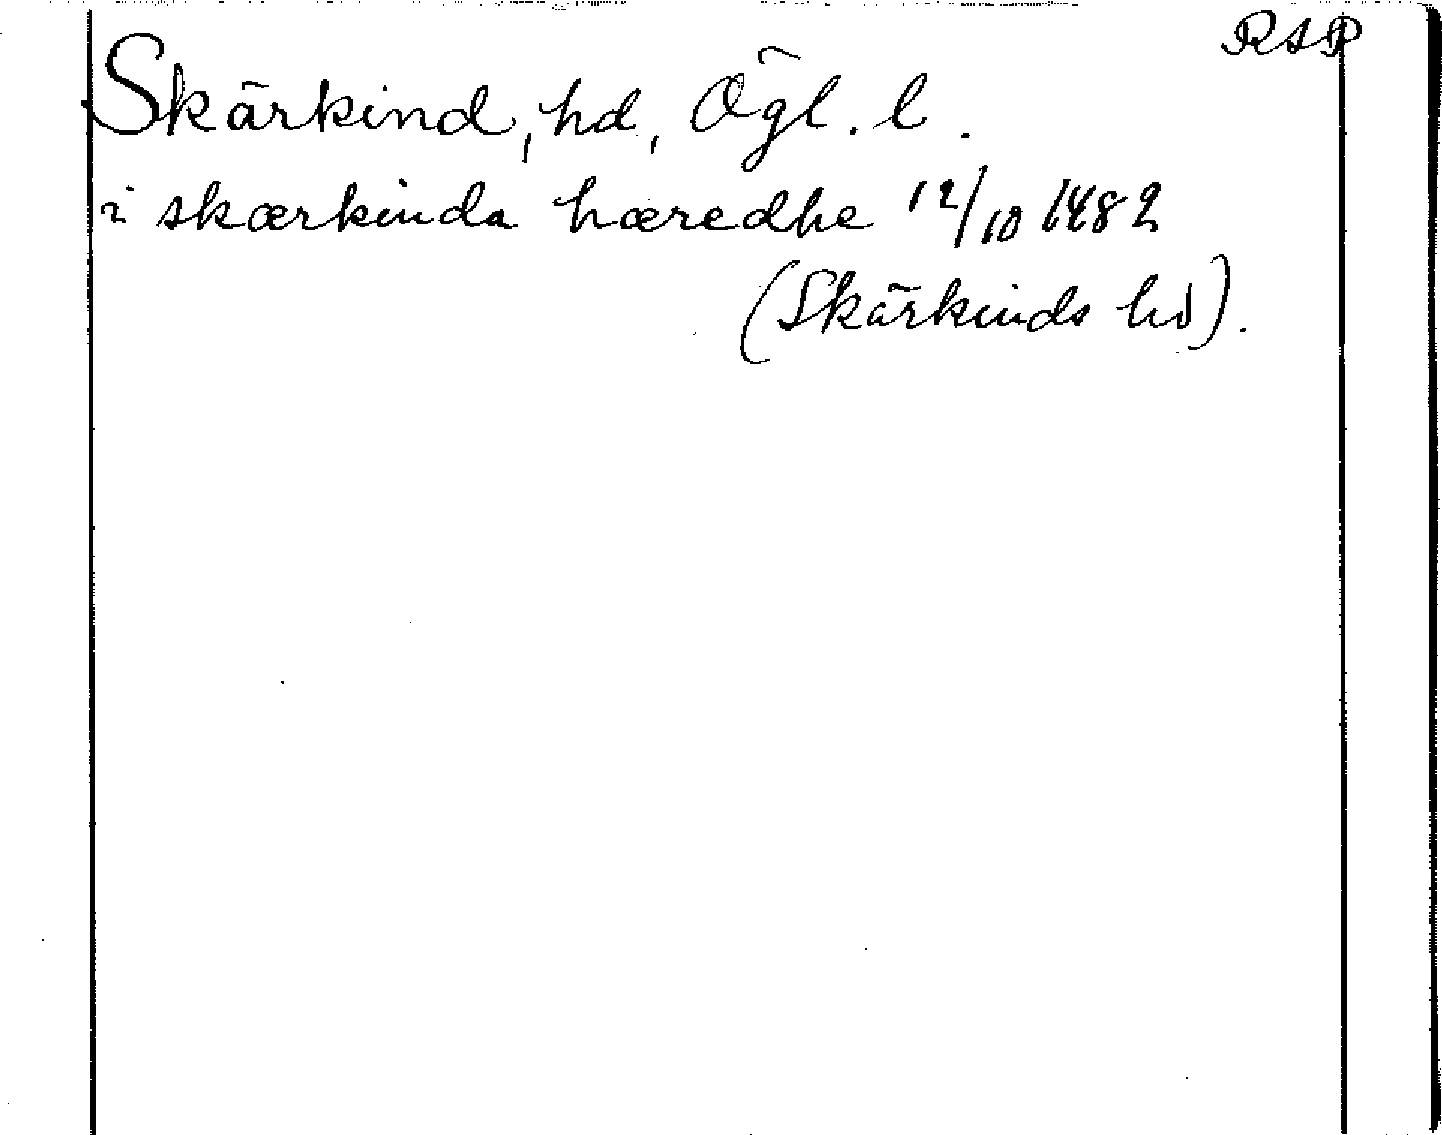 RAP
Skärkind, hd, Ögl. l.
i skærkinda hæredhe 12/10 1482
(Skärkinds hd).